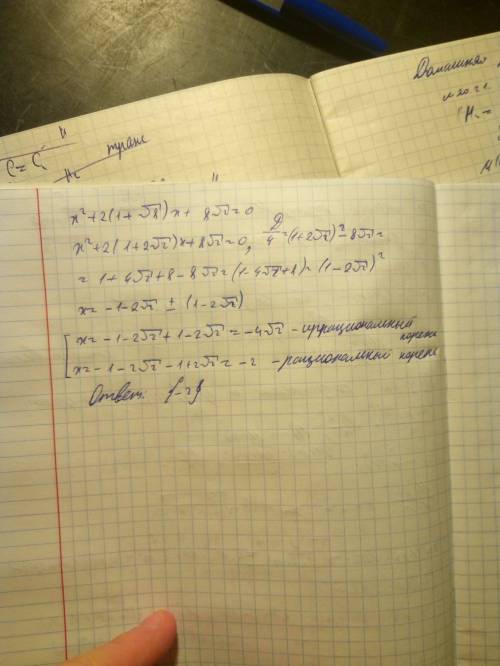 Домашняя
C = C
H
H₂
транс
H₂ -
x²+2(1+√8)x + 8√2=0
x²+2(1+2√2)x+8√2=0, D/4=(1+2√2)²-8√2=
= 1+4√2+8-8√2=(1-4√2+8)=(1-2√2)²
x=-1-2√2 ± (1-2√2)
[x=-1-2√2+1-2√2=-4√2 - иррациональный корень
x=-1-2√2-1+2√2=-2 - рациональный корень
Ответ: {-2}